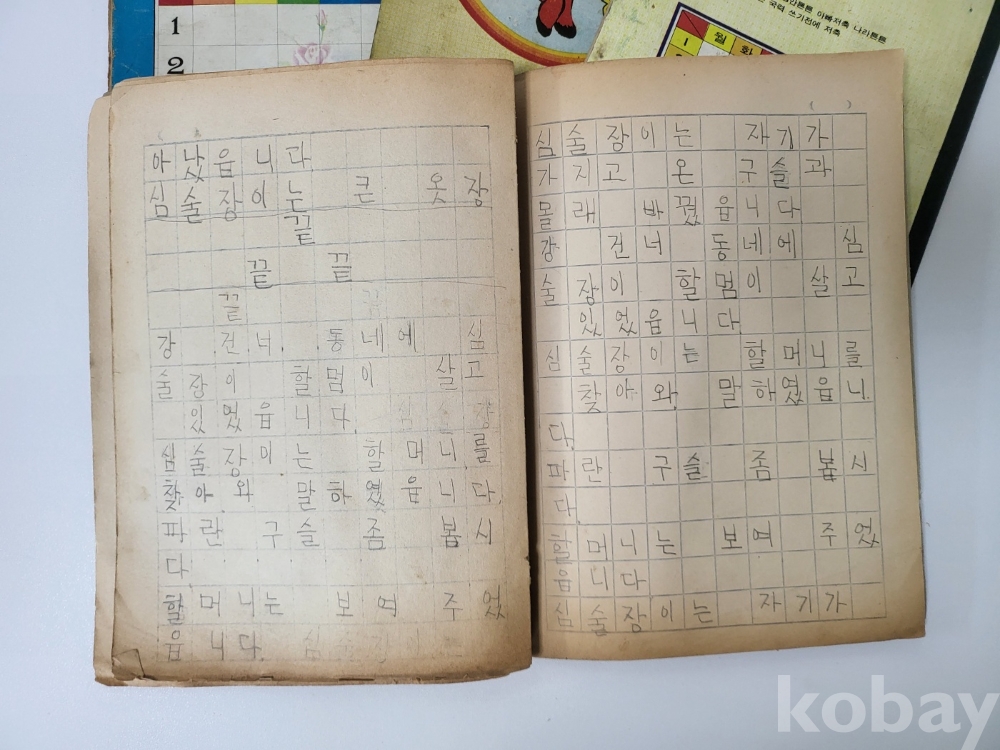 1
2
안튼튼 아빠저축 나라튼튼
국력 쓰기전에 저축
월 화
1
아났읍니다
심술장이는 큰 옷장
끝
끝 끝
끝
강 건너 동네에 심
술장이 할멈이 살고
있었읍니다
심술장이는 할머니를
찾아와 말하였읍니다.
파란 구슬 좀 봅시
다
할머니는 보여 주었
읍니다. 심술장이는
( )
심술장이는 자기가
가지고 온 구슬과
몰래 바꿨읍니다
강 건너 동네에 심
술장이 할멈이 살고
있었읍니다.
심술장이는 할머니를
찾아와 말하였읍니
다.
파란 구슬 좀 봅시
다.
할머니는 보여 주었
읍니다
심술장이는 자기가
kobay